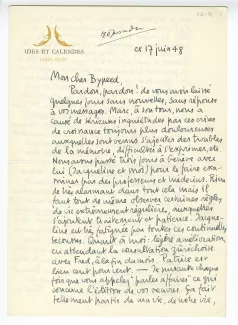 IDES ET CALENDES
répondu
ce 17 juin 48
Mon cher
Pardon, pardon ! de vous avoir laissé
quelques jours sans nouvelles, sans réponse
à vos messages. Marc, à son tour, nous a
causé de sérieuses inquiétudes par ces crises
de croissance toujours plus douloureuses
auxquelles sont venus s'ajouter des troubles
de la mémoire, difficultés à s'exprimer, etc
Nous avons passé trois jours à Genève avec
lui (Jacqueline et moi) pour le faire exa-
miner par des professeurs et médecins. Rien
de très alarmant dans tout cela mais il
faut tout de même observer certaines règles
de vie extrêmement régulière, auxquelles
s'ajoutent traitement et patience. Jacque-
line est très fatiguée par toutes ces continuelles
secousses. Quant à moi : légère amélioration,
en attendant la consultation
avec Fred, à la fin du mois. Patrice est
bien
chaque
fois que vous appelez "parler affaires" ce qui
concerne l'édition de vos œuvres. Ça fait
tellement partie de ma vie, de notre vie,